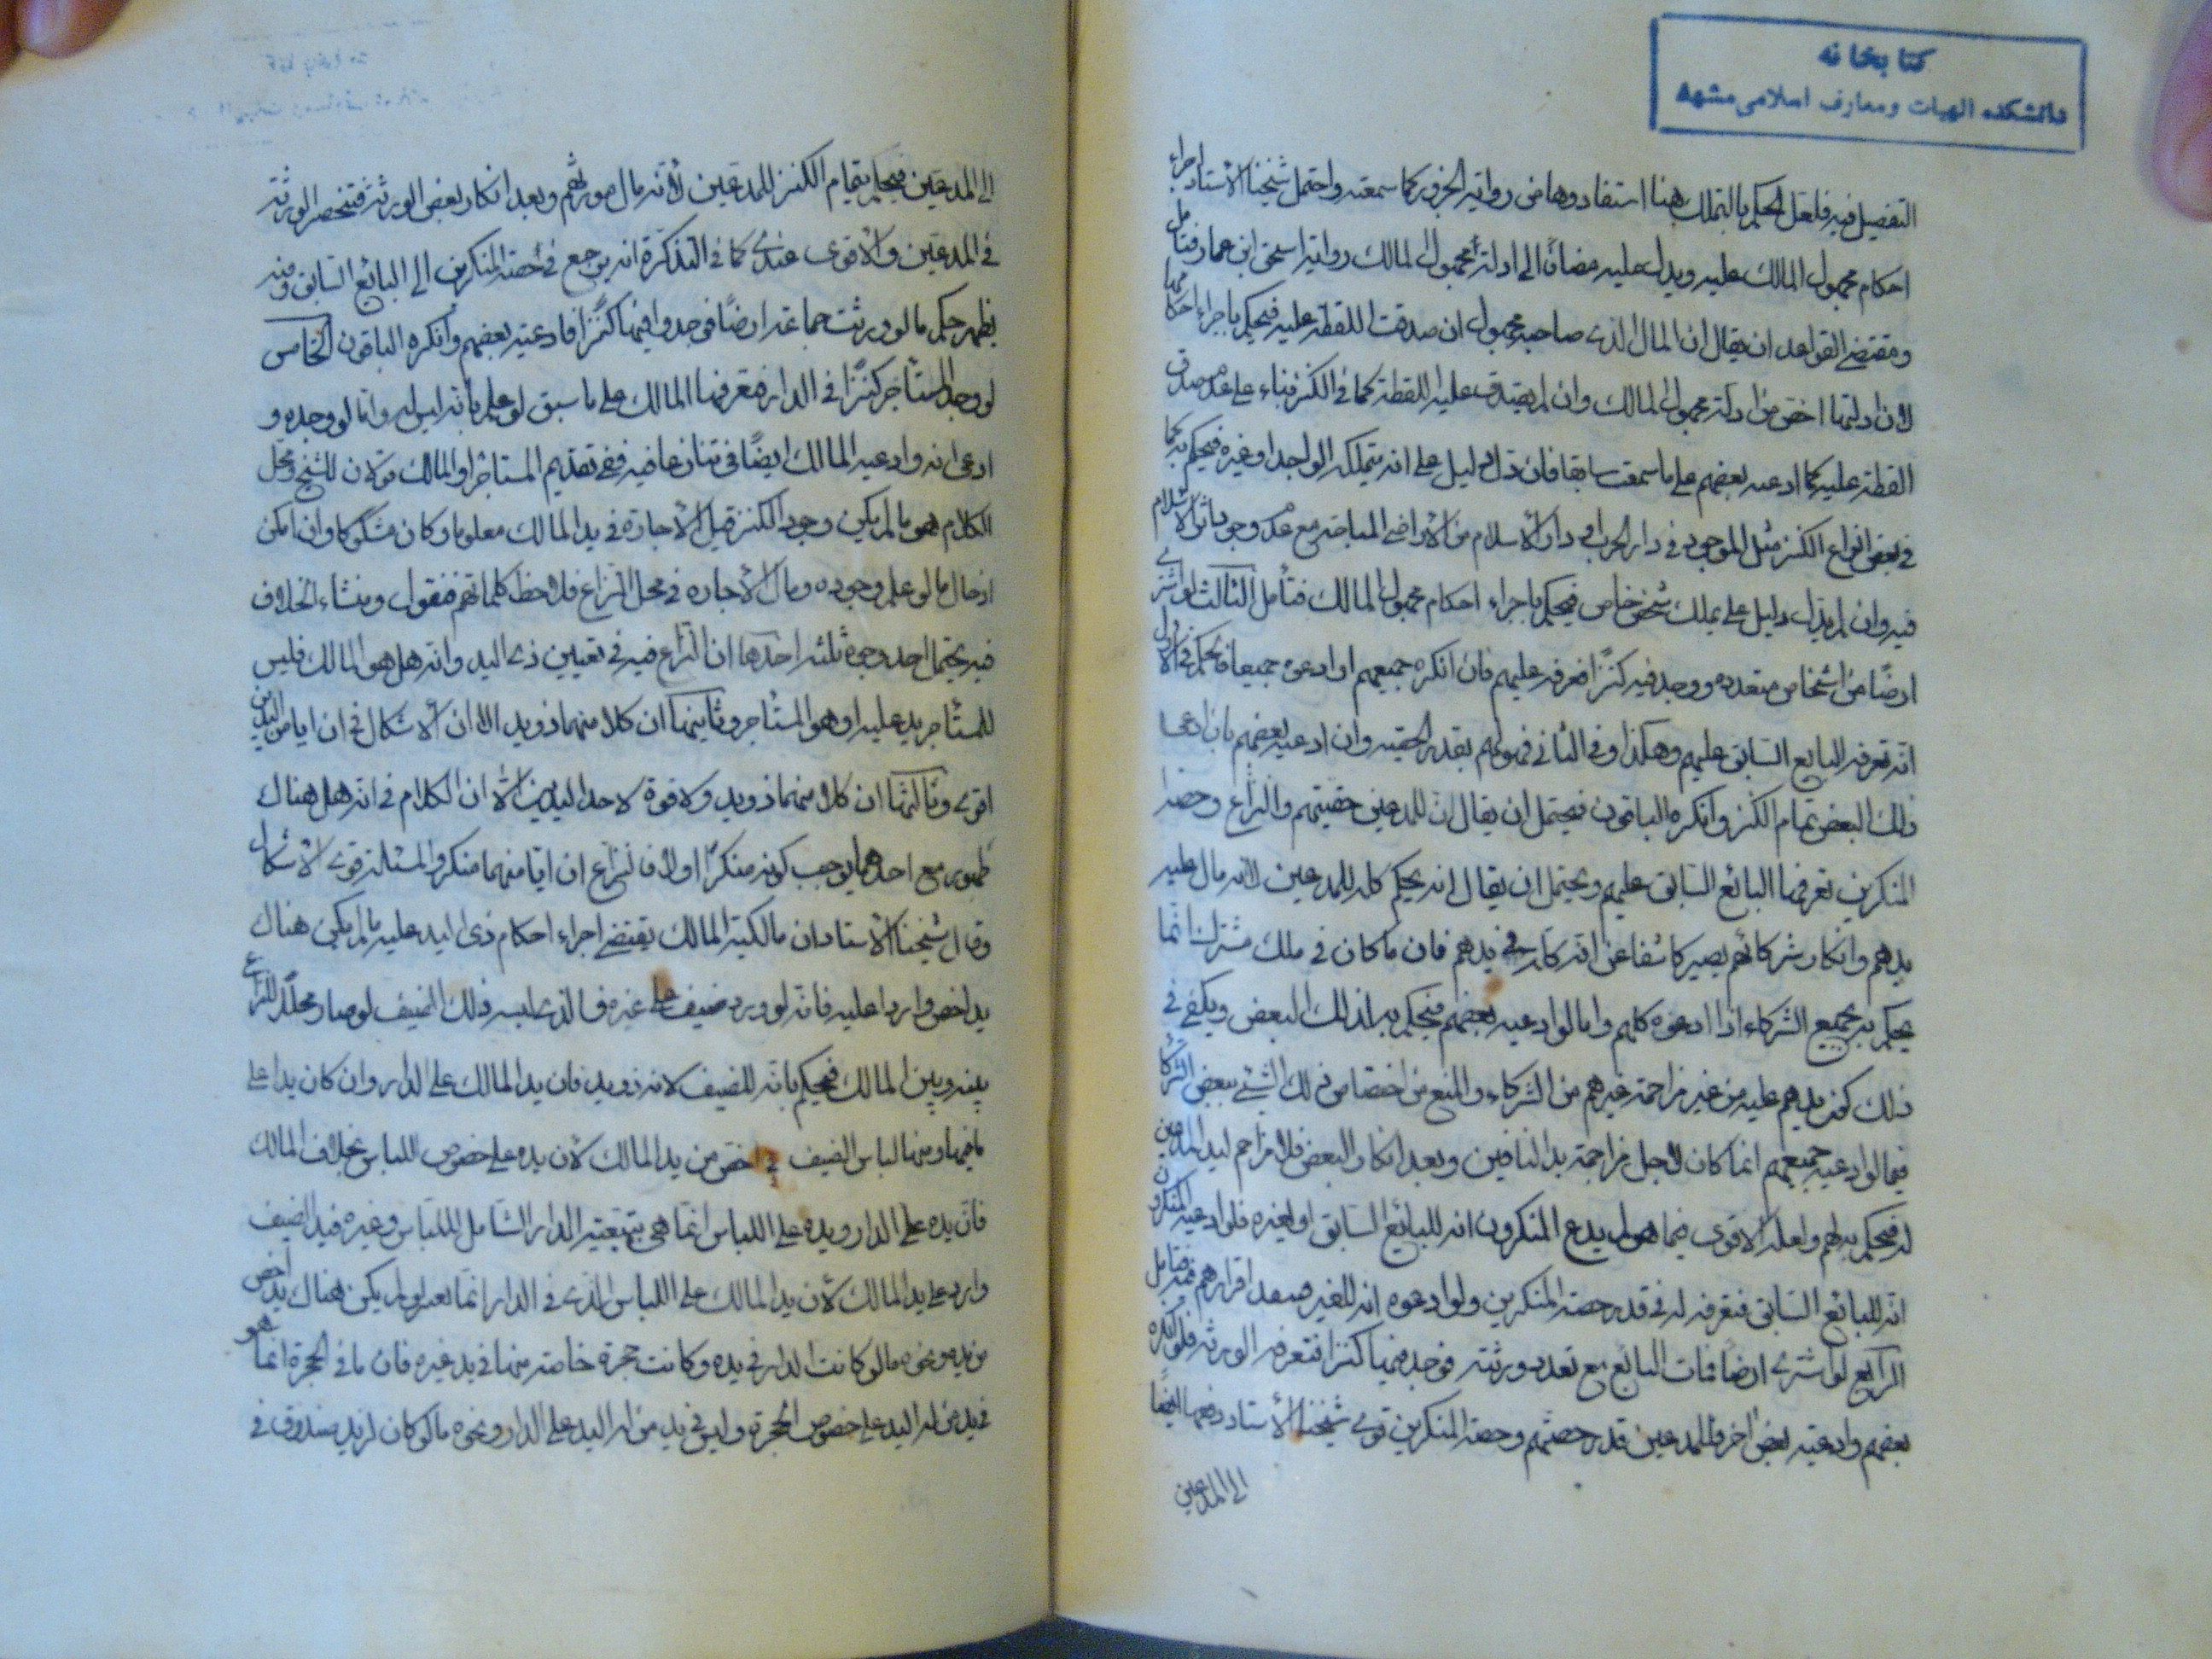 كتابخانه
دانشكده الهيات ومعارف اسلامى مشهد
التفصيل فيه فلعل الحكم بالتملك هنا استفادوها من رواية الجزور كما سمعته واحتمل شيخنا الأستاد اجراء
احكام مجهول المالك عليه ويدل عليه مضافًا الى ادلة مجهول المالك رواية اسحق ابن عمار فتامل
ومقتضى القواعد ان يقال ان المال الذى صاحبه مجهول ان صدقت اللقطة عليه فيحكم باجراء احكامها
لان ادلتها اخص من ادلة مجهول المالك وان لم يصدق عليه اللقطة كما فى الكنز بناء على عدم صدق
اللقطة عليه كما ادعيه بعضهم على ما سمعت سابقا فان دل دليل على انه يتملكه الواجد او غيره فيحكم به كما
فى بعض انواع الكنز مثل الموجود فى دار الحرب او دار الأسلام من الأراضى المباحة مع عدم وجود اثر الأسلام
فيه وان لم يدل دليل على تملك شخص خاص فيحكم باجراء احكام مجهول المالك فتأمل الثالث لو اشترى
ارضًا من اشخاص متعدده ووجد فيه كنزًا فعرفه عليهم فان انكره جميعهم او ادعوه جميعا فالحكم فى الأول
انه تعرفه البايع السابق عليهم وهكذا وفى الثانى فهو لهم بقدر الحصة وان ادعيه بعضهم بان ادعى
ذلك البعض تمام الكنز وانكره الباقون فيحتمل ان يقال ان للمدعين حصتهم والنزاع وحصة
المنكرين تعرفها البائع السابق عليهم ويحتمل ان يقال انه يحكم كله للمدعين لأنه مال عليه
يدهم وانكار شركائهم يصير كاشفا عن انه كان فى يدهم فان ما كان فى ملك مشترك انما
يحكم به لجميع الشركاء اذا ادعوه كلهم واما لو ادعيه بعضهم فيحكم به لذلك البعض ويكفى فى
ذلك كون يدهم عليه من غير مزاحمة غيرهم من الشركاء والمنع من اختصاص ذلك الشئ ببعض الشركا
فيما لو ادعيه جميعهم انما كان لاجل مزاحمة يد النافين وبعد انكار البعض فلا مزاحم ليد المدعين
له فيحكم به لهم ولعله الأقوى فيما لم يدع المنكرون انه للبائع السابق او لغيره فلو ادعيه المنكرون
انه للبائع السابق فتعرفه له فى قدر حصة المنكرين ولو ادعوه انه للغير فبعد اقرارهم فتامل
الرابع لو اشترى ارضا فمات البائع مع تعدد ورثته فوجد فيها كنزا فتعرفه الورثه فلو انكره
بعضهم وادعيه بعض اخر فللمدعين قدر حصتهم وحصة المنكرين قوى شيخنا الأستاد دفعها ايضًا
الى المدعين
الى المدعين فيحكم بتمام الكنز للمدعين لأنه مال مورثهم وبعد انكار بعض الورثة فتنحصر الورثة
فى المدعين والأقوى عندى كما فى التذكرة انه يرجع فى حصة المنكرين الى البائع السابق ومنه
يظهر حكم ما لو ورثت جماعة ارضًا فوجدوا فيها كنزًا فادعيه بعضهم وانكره الباقون الخامس
لو وجد المستأجر كنزًا فى الدار فعرفها المالك على ما سبق لو علم بأنه ليس له واما لو وجده و
ادعى انه له وادعيه المالك ايضًا فتنازعا فيه ففى تقديم المستاجر او المالك قولان للشيخ ومحل
الكلام هو ما لم يكن وجود الكنز قبل الأجارة فى يد المالك معلوما وكان مشكوكا وان امكن
ادخال ما لو علم وجوده ومال الأجاره فى محل النزاع فلاحظ كلماتهم فنقول ومنشاء الخلاف
فيه يحتمل احد وجوه ثلثه احدها ان النزاع فيه فى تعيين ذى اليد وانه هل هو المالك فليس
للمستأجر يد عليه او هو المستاجر وثانيهما ان كلا منهما ذو يد الا ان الأشكال فى ان ايا من اليدين
اقوى وثالثها ان كلا منهما ذو يد ولا قوة لاحد اليدين الا ان الكلام فى انه هل هناك
ظهور مع احدهما يوجب كونه منكرًا او لا فالنزاع ان ايا منهما منكر والمسئلة قوى الأشكال
وقال شيخنا الأستاد ان مالكية المالك يقتضى اجراء احكام ذى اليد عليه ما لم يكن هناك
يد اخص واردا عليه فانه لو ورد ضيف على غيره فالذى لبسه ذلك الضيف لو صار محلًا للنزاع
بينه وبين المالك فيحكم بانه للضيف لانه ذو يد فان يد المالك على الدار وان كان يدا على
ما فيها ومنها لباس الضيف اخص من يد المالك لأن يده على خصوص اللباس بخلاف المالك
فان يده على الدار ويده على اللباس انما هى بتبعية الدار الشامل لللباس وغيره فيد الضيف
وارد على يد المالك لأن يد المالك على اللباس الذى فى الدار انما تعتبر لو لم يكن هناك يد اخص
من يده ونحوه ما لو كانت الدار فى يده وكانت حجرة خاصة منها فى يد غيره فان ما فى الحجرة انما هو
فى يد من له اليد على خصوص الحجرة وليس فى يد من له اليد على الدار ونحوه ما لو كان لزيد صندوق فى